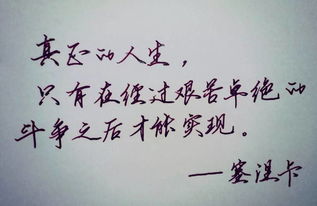 真正的人生，
只有在经过艰苦卓绝的
斗争之后才能实现。
——塞涅卡